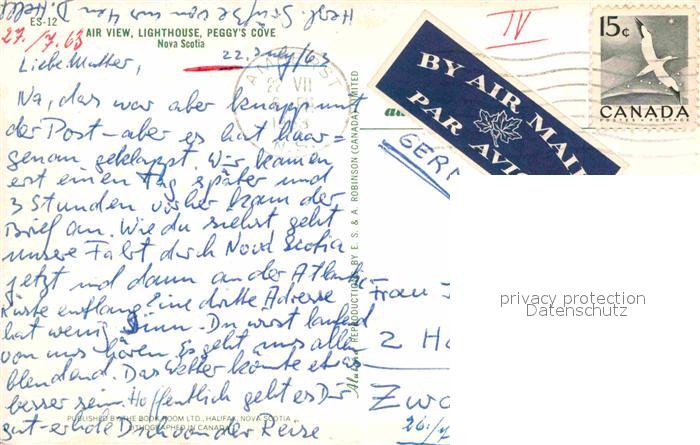 Herzl. Grüße von
ES-12
27./7.63
AIR VIEW, LIGHTHOUSE, PEGGY'S COVE
Nova Scotia
22. July / 63
Liebe Mutter,
Na, das war aber knapp mit
der Post - aber es hat haar=
genau geklappt. Wir kamen
erst einen Tag später und
3 Stunden vorher kam der
Brief an. Wie du siehst geht
unsere Fahrt durch Nova Scotia
jetzt und dann an der Atlantik-
küste entlang. Eine dritte Adresse
hat wenig Sinn. Du wirst laufend
von uns hören. Es geht uns allen
blendend. Das Wetter könnte etwas
besser sein. Hoffentlich geht es Dir
gut - erhole Dich von der Reise
PUBLISHED BY THE BOOK ROOM LTD., HALIFAX, NOVA SCOTIA
LITHOGRAPHED IN CANADA
REPRODUCTION BY E. S. & A. ROBINSON (CANADA) LIMITED
IV
22 VII
N.S.
BY AIR MAIL
PAR AVION
15¢
CANADA
POSTES POSTAGE
GER
Frau
2 Ha
Zw
26./7
privacy protection
Datenschutz